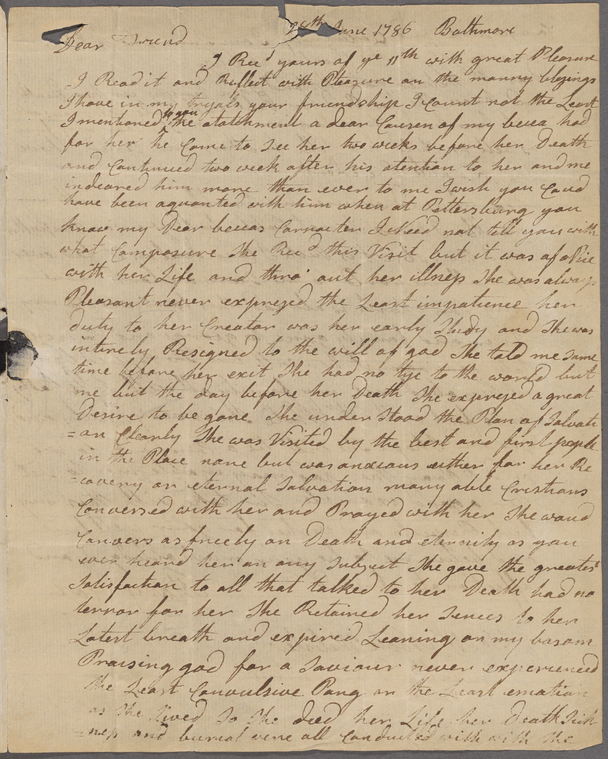 26th June 1786 Baltimore
Dear Friend
I Recd yours of ye 11th with great Pleasure
I Read it and Reflect with Pleasure on the manny blesings
I have in my tryals your friendship I Count not the Least
I mentioned to you the atatchment a dear Causen of my becca had
for her he Came to See her two weeks before her Death
and Continued two week after his atention to her and me
indeared him more than ever to me I wish you Coud
have been aquanted with him when at Pettersburg you
know my Dear beccas Carracter I Need not tell you with
what Composure She Recd this Visit but it was of a Piece
with her Life and thro' out her illness She was always
Pleasant never expresed the Least impatience her
duty to her Creator was her early Study and She was
intirely Resigned to the will of god She told me Some
time before her exit She had no tye to the world but
me but the day before her Death She expresed a great
Desire to be gone She under Stood the Plan of Salvati
=on Clearly She was Visited by the best and first people
in the Place none but was anxious either for her Re
=covery or eternal Salvation many able Cristians
Conversed with her and Prayed with her She woud
Convers as freely on Death and eternity as you
ever heard her on any Subject She gave the greatest
Satisfaction to all that talked to her Death had no
terror for her She Retained her Sences to her
Latest breath and expired Leaning on my bosom
Praising god for a Saviour never experienced
the Least Convulsive Pang or the Least emotion
as She Lived So She died her Life her Death Sick
=ness and burial were all Conducted with with the